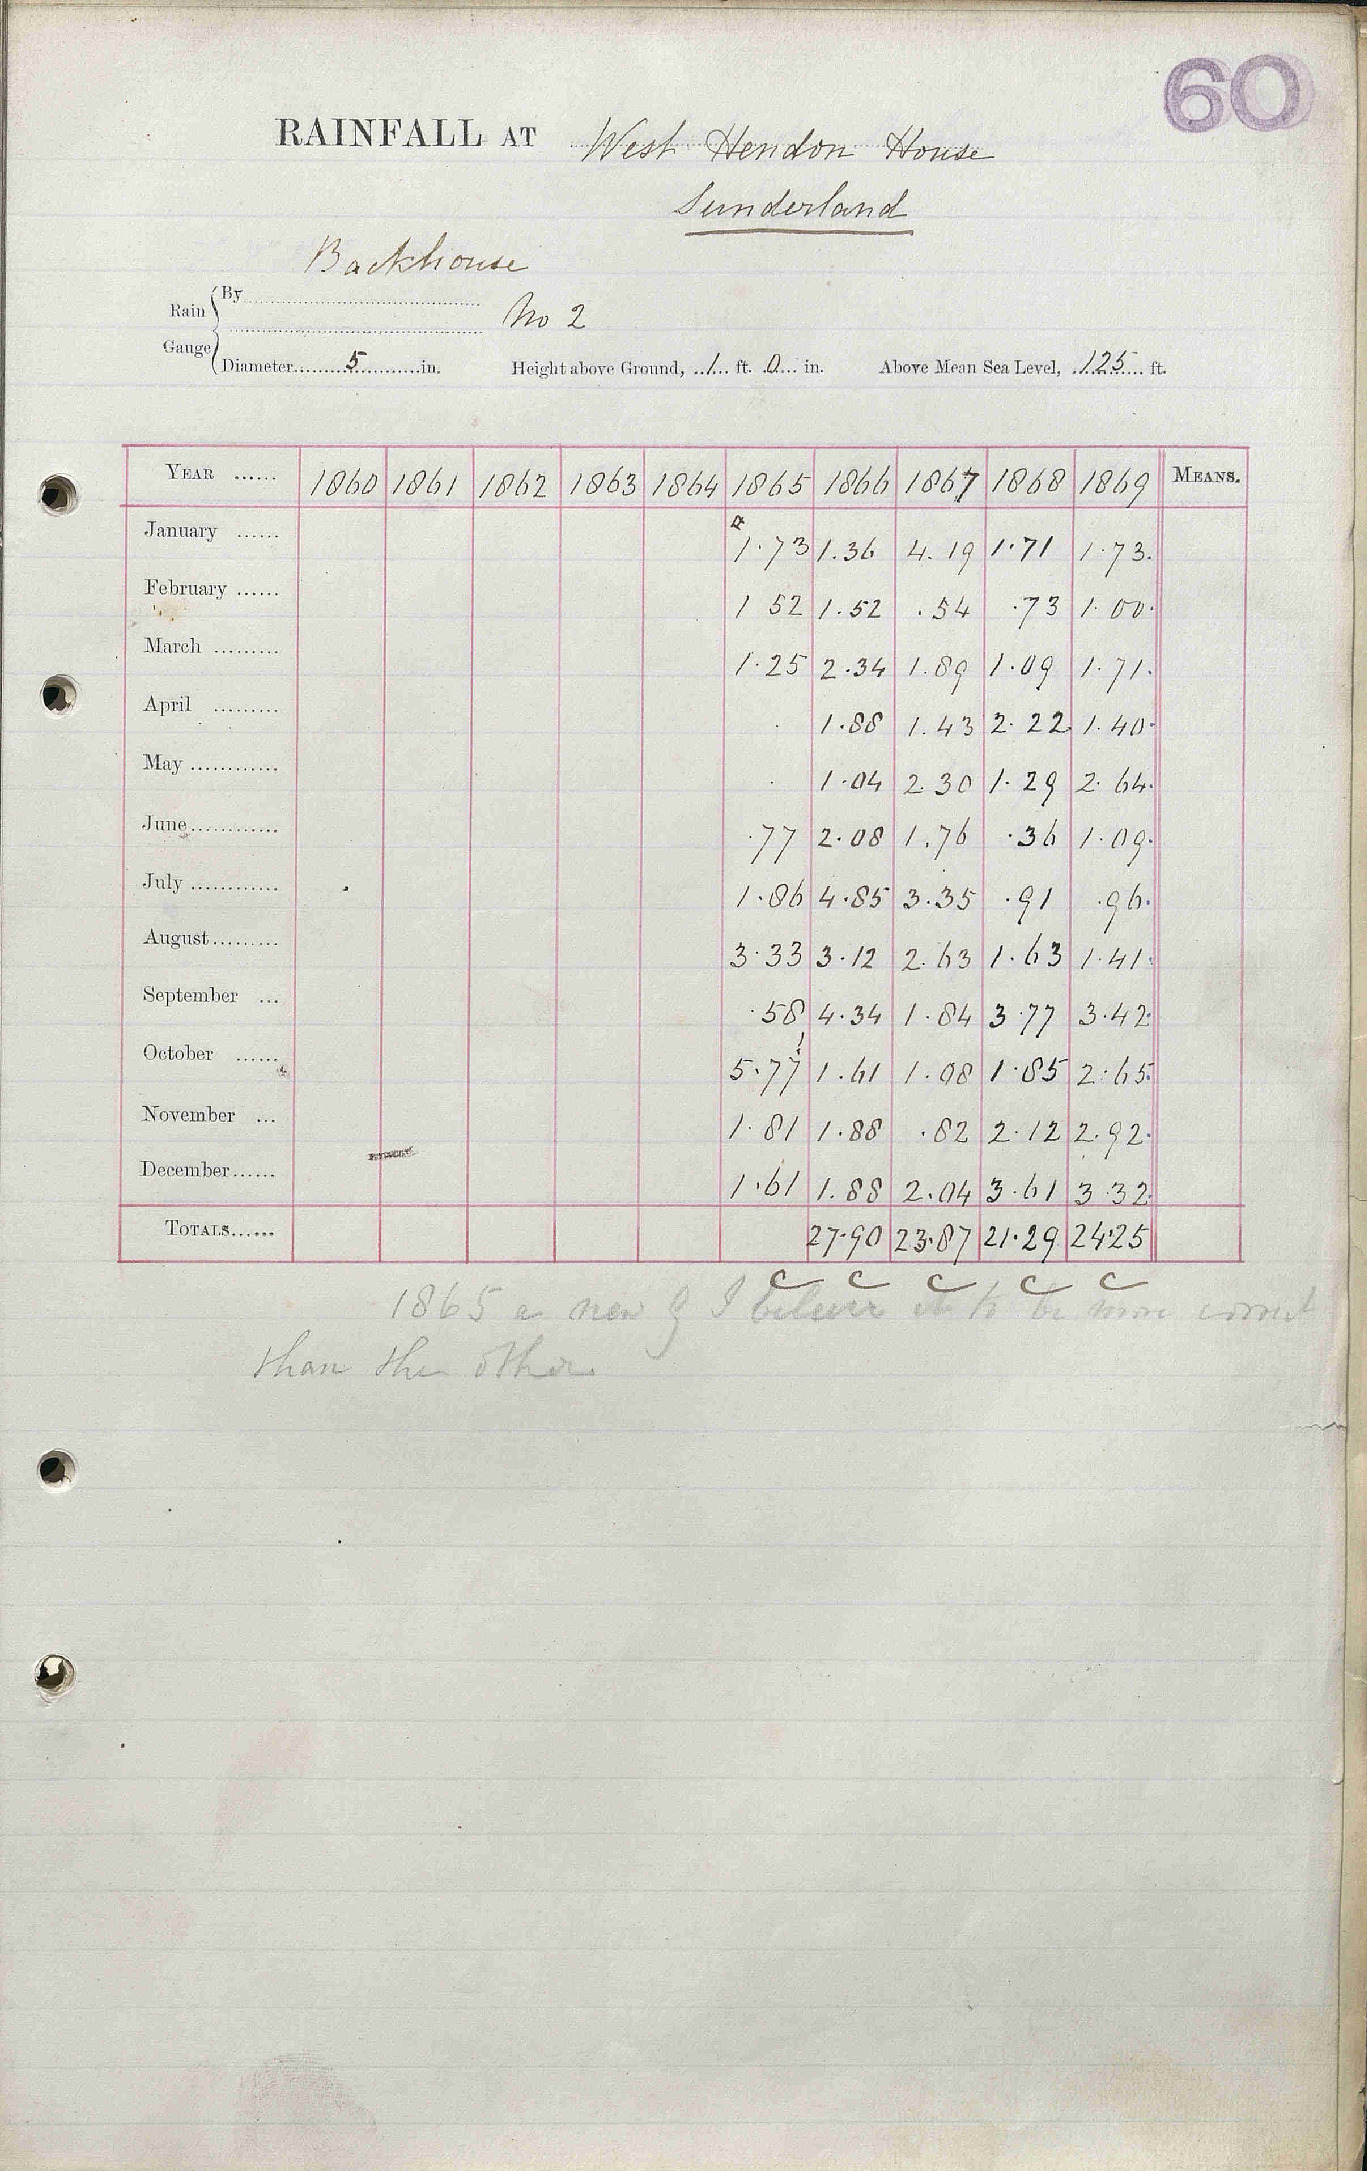 60
RAINFALL AT West Hendon House
Sunderland
Backhouse
Rain Gauge { By
No 2
Diameter 5 in. Height above Ground, 1 ft. 0 in. Above Mean Sea Level, 125 ft.
YEAR 1860 1861 1862 1863 1864 1865 1866 1867 1868 1869 MEANS.
January 1.73 1.36 4.19 1.71 1.73
February 1 52 1.52 .54 .73 1.00
March 1.25 2.34 1.89 1.09 1.71
April 1.88 1.43 2.22 1.40
May 1.04 2.30 1.29 2.64
June .77 2.08 1.76 .36 1.09
July 1.86 4.85 3.35 .91 .96
August 3.33 3.12 2.63 1.63 1.41
September .58 4.34 1.84 3.77 3.42
October 5.77 1.61 1.08 1.85 2.65
November 1.81 1.88 .82 2.12 2.92
December 1.61 1.88 2.04 3.61 3.32
TOTALS 27.90 23.87 21.29 24.25
C C C C C
1865 a new g I believe it to be more correct
than the other